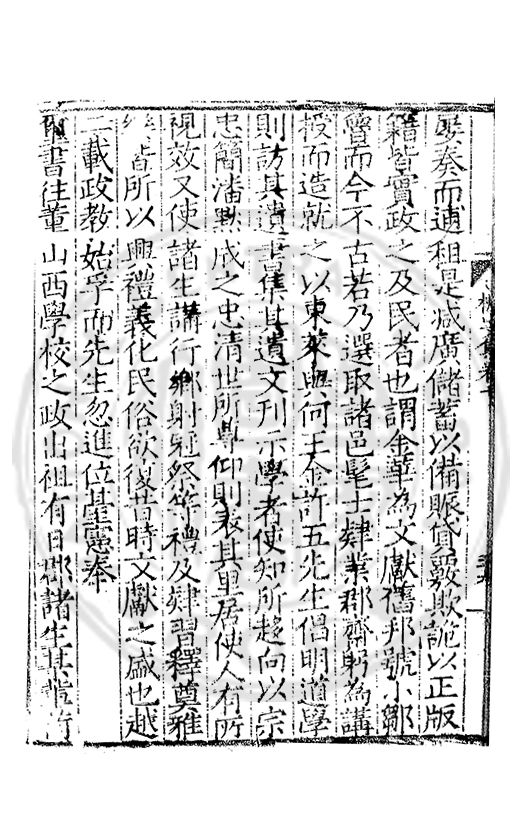 奏而逋租是减廣儲蓄以備賑貸覈欺詭以正版
籍皆實政之及民者也謂金華為文獻舊邦號小鄒
魯而今不古若乃選取諸邑髦士肄業郡齋躬為講
授而造就之以東萊與何王金許五先生倡明道學
則訪其遺書集其遺文刊示學者使知所趍向以宗
忠簡潘默成之忠清世所尊仰則表其里居使人有所
視效又使諸生講行鄉射冠祭等禮及肄習釋奠雅
皆所以興禮義化民俗欲復昔時文獻之盛也越
二載政教始孚而先生忽進位臺憲奉
璽書往董山西學校之政出祖有日郡諸生某輩